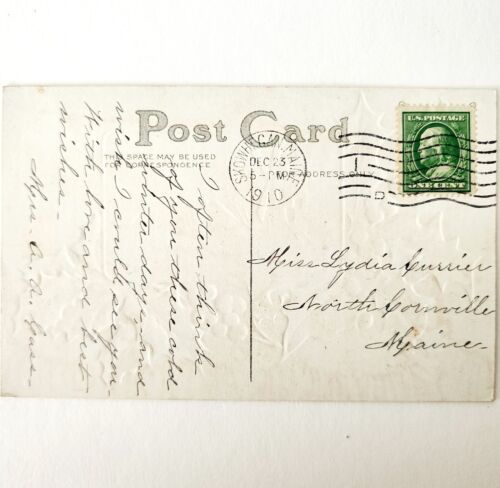 Post Card
THIS SPACE MAY BE USED
FOR CORRESPONDENCE
ADDRESS ONLY
SKOWHEGAN, MAINE
DEC 23
5 - PM
1910
1
D
U.S. POSTAGE
ONE CENT
I often think
of you these cold
winter days and
wish I could see you
With love and best
wishes -
Mrs. A. A. Gass -
Miss Lydia Currier
North Cornville
Maine -